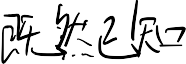 既然已知